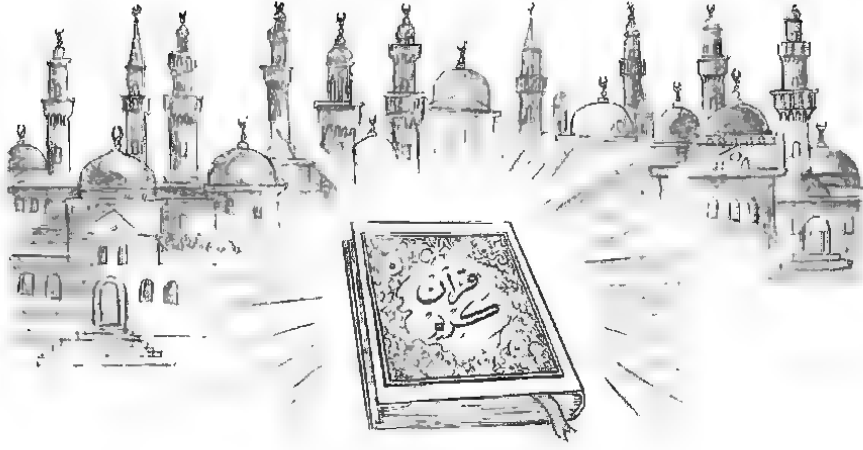 قرآن
كريم